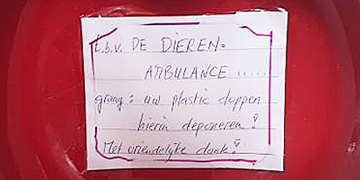 t.b.v. DE DIEREN=
AMBULANCE .....
graag: uw plastic doppen
hierin deponeren!
Met vriendelijke dank!